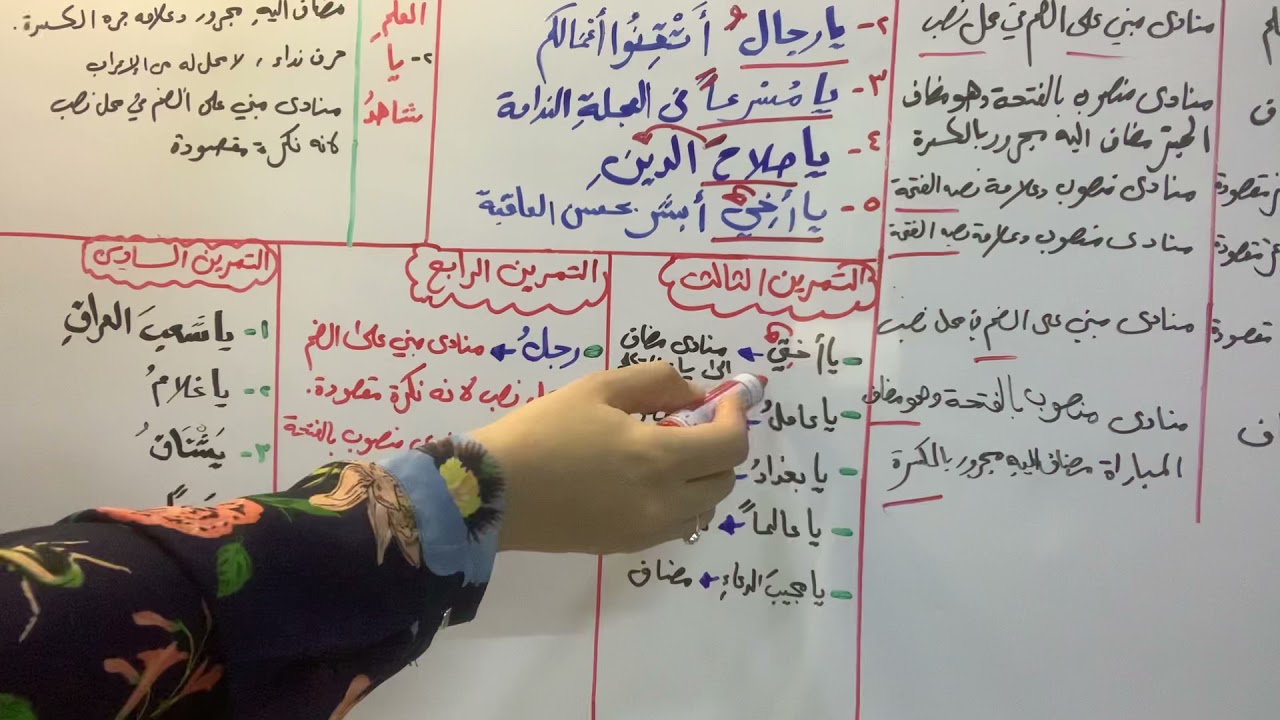 منادى مبني على الضم في محل نصب
منادى منصوب بالفتحة وهو مضاف
مضاف اليه مجرور بالكسرة
منادى منصوب وعلامة نصبه الفتحة
منادى منصوب وعلامة نصبه الفتحة
منادى مبني على الضم في محل نصب
منادى منصوب بالفتحة وهو مضاف
المباراة مضاف اليه مجرور بالكسرة
مقصودة
مقصودة
مقصودة
٢- يا رجالُ أَتْقِنُوا أعمالكم
٣- يا مُسْرعاً في العجلةِ الندامة
٤- يا صلاحَ الدينِ
٥- يا أخِيْ أبشر بحسن العاقبة
مضاف اليهِ مجرور وعلامه جره الكسرة.
العلمِ
٢- يا حرف نداء، لا محل له من الإعراب
مشاهدُ منادى مبني على الضم في محل نصب
لانه نكرة مقصودة
التمرين الثالث
- يا أخيْ ← منادى مضاف
الى
- يا عاملُ
- يا بغدادُ
- يا عالماً ←
- يا مجيبَ الدعاءِ ← مضاف
التمرين الرابع
رجلُ ← منادى مبني على الضم
نصب لانه نكرة مقصودة.
منصوب بالفتحة
التمرين السادس
١- يا شعبَ العراقِ
٢- يا غلامُ
٣- يَشْتاقُ